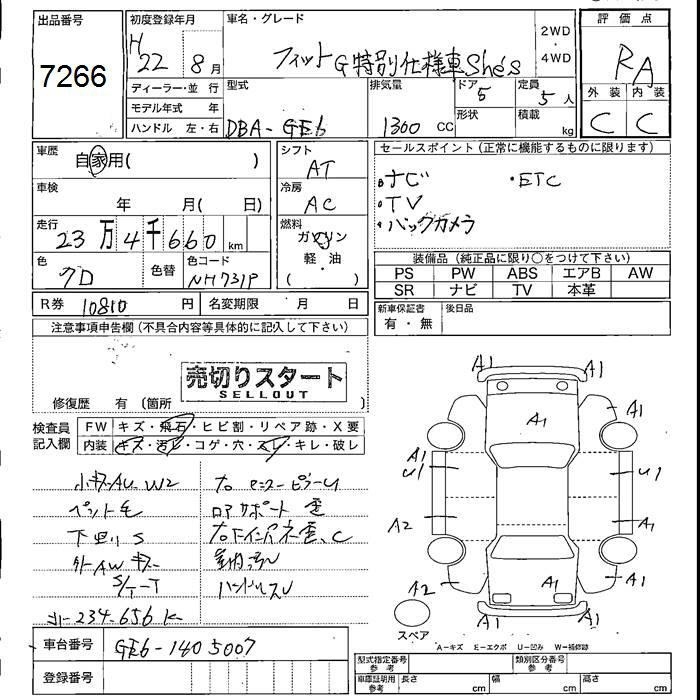 出品番号
7266
初度登録年月
H 22 8月
ディーラー・並 行
モデル年式 年
ハンドル 左・右
車名・グレード
フィット G 特別仕様車 She's
2WD
・
4WD
型式
DBA-GE6
排気量
1300 CC
ドア
5
形状
定員
5 人
積載
kg
評 価 点
RA
外 装 内 装
C C
車歴
自家用( )
車検
年 月( 日)
走行
23万4千660 km
色
色替
色コード
NH731P
シフト
AT
冷房
AC
燃料
ガソリン
軽・油
( )
セールスポイント(正常に機能するものに限ります)
・ナビ ・ETC
・TV
・バックカメラ
装備品(純正品に限り○をつけて下さい)
PS PW ABS エアB AW
SR ナビ TV 本革
R券 10810 円 名変期限 月 日
新車保証書
有・無
後日品
注意事項申告欄(不具合内容等具体的に記入して下さい)
売切りスタート
SELLOUT
修復歴 有(箇所
検査員
記入欄
FW キズ・飛石・ヒビ割・リペア跡・X要
内装 キズ・汚レ・コゲ・穴・スレ・キレ・破レ
W2
ペット毛
下回り S
外AW キズ
S/T-T
234-656 K
右 センターピラーU
ロアサポート 歪
C
室内汚レ
ハンドルスレ
A1 A1
A1 A1
A1
U1 U1
A2 A1
A2 A1 A1 A1
A1 A1
スペア
A-キズ E-エクボ U-凹み W-補修跡
車台番号 GE6-1405007
登録番号
型式指定番号
参 考
類別区分番号
参 考
車庫証明用
参考
長さ cm 幅 cm 高さ cm